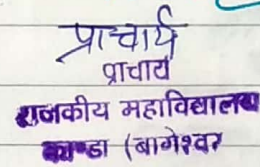 प्राचार्य
प्राचार्य
राजकीय महाविद्यालय
काण्डा (बागेश्वर